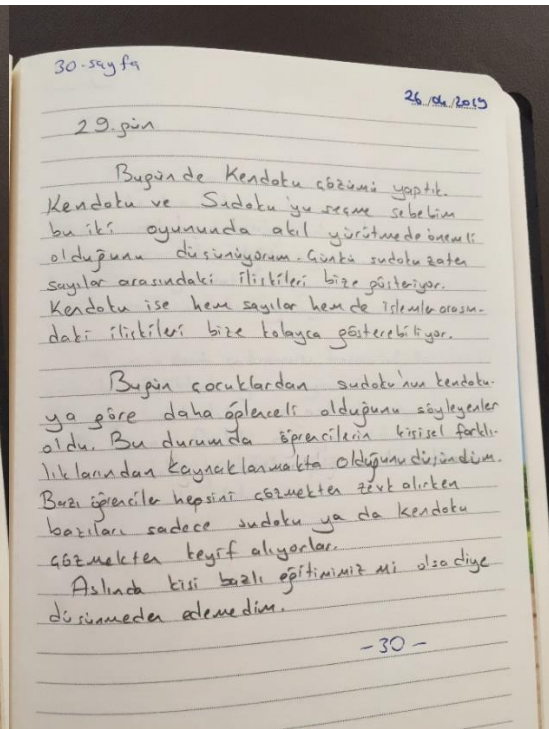 30-sayfa
26/04/2019
29.gün
Bugünde Kendoku çözümü yaptık.
Kendoku ve Sudoku'yu seçme sebebim
bu iki oyununda akıl yürütmede önemli
olduğunu düşünüyorum. Çünkü sudoku zaten
sayılar arasındaki ilişkileri bize gösteriyor.
Kendoku ise hem sayılar hemde işlemler arasın-
daki ilişkileri bize kolayca gösterebiliyor.
Bugün çocuklardan sudoku'nun kendoku-
ya göre daha eğlenceli olduğunu söyleyenler
oldu. Bu durumda öğrencilerin kişisel farklı-
lıklarından kaynaklanmakta olduğunu düşündüm.
Bazı öğrenciler hepsini çözmekten zevk alırken
bazıları sadece sudoku ya da kendoku
çözmekten keyif alıyorlar.
Aslında kişi bazlı eğitimimiz mi olsa diye
düşünmeden edemedim.
-30-